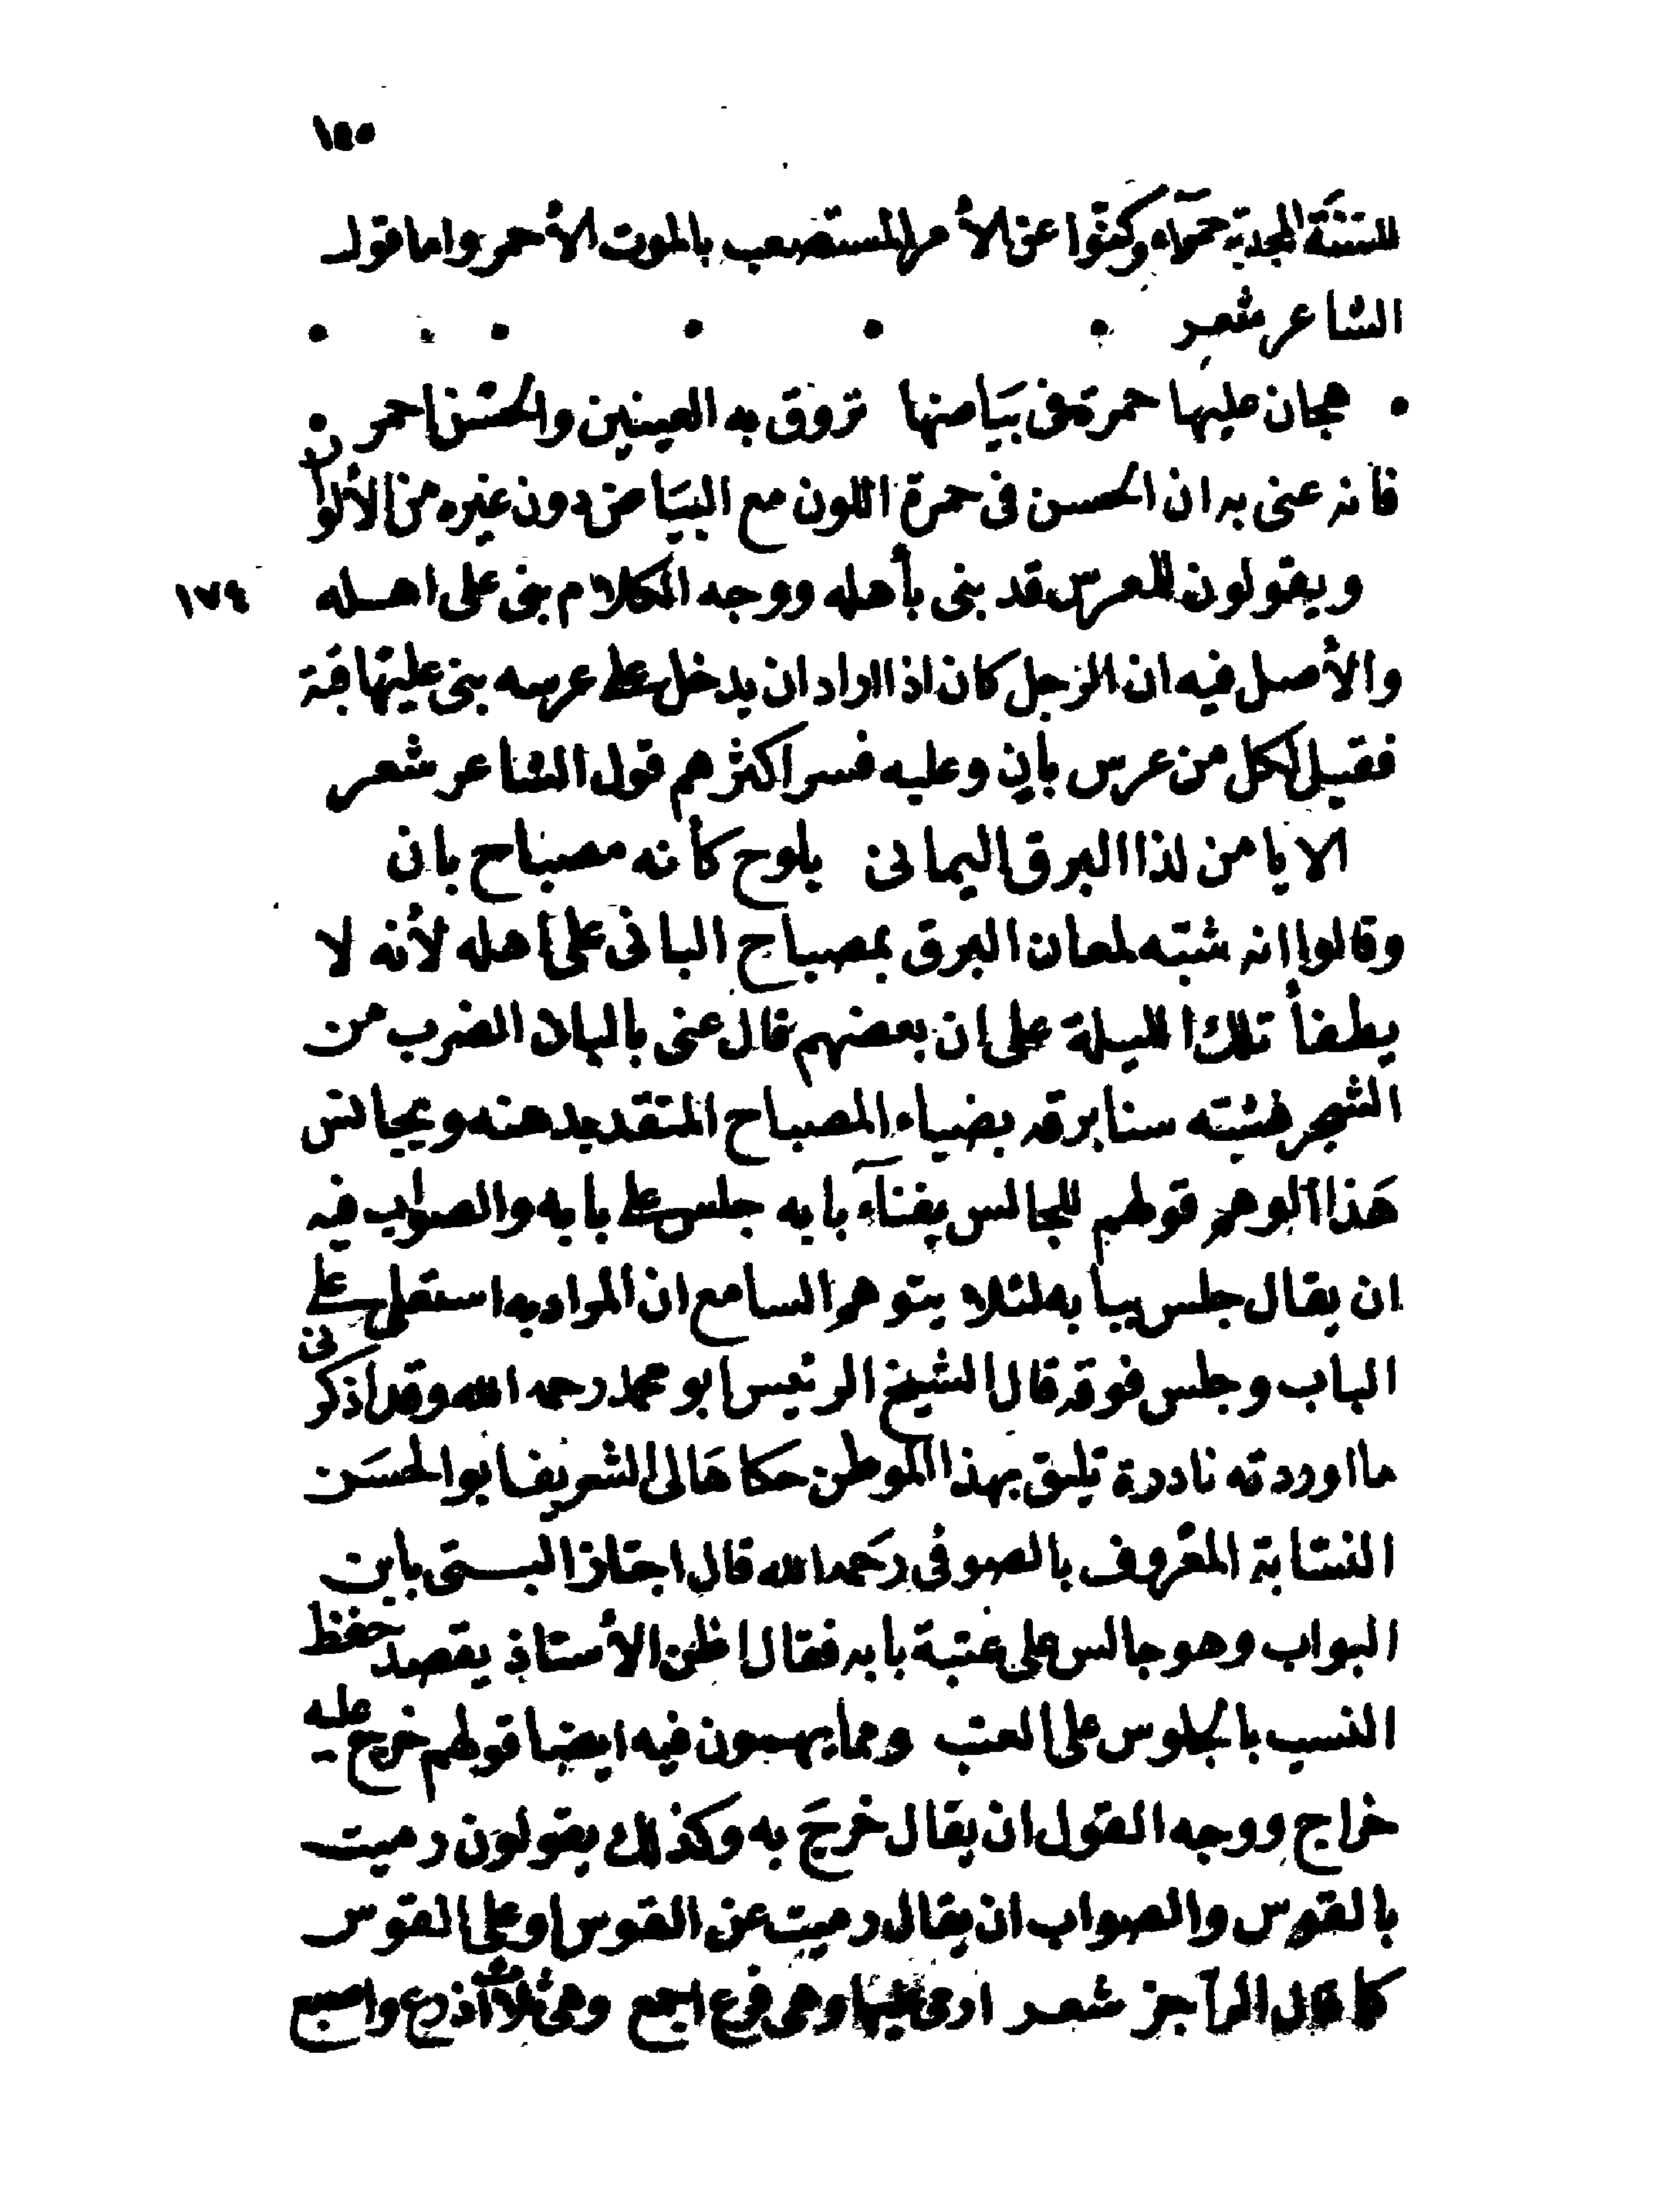 ١٤٥
للسنة المجدبة حمراء وكنوا عن الأمر المستصعب بالموت الأحمر واما قول
الشاعر شعر
هجان عليها حمرة فى بياضها تروق به العينين والحسن احمر
فانه عنى به ان الحسن فى حمرة اللون مع البياض دون غيره من الألوان
ويقولون للمعرس قد بنى بأهله ووجه الكلام بنى على اهله
١٧٤
والأصل فيه ان الرجل كان اذا اراد ان يدخل على عرسه بنى عليها قبة
فقيل لكل من عرس بان وعليه فسر اكثرهم قول الشاعر شعر
الا يا من لذا البرق اليمانى يلوح كأنه مصباح بان
وقالوا انه شبه لمعان البرق بمصباح البانى على اهله لأنه لا
يطفأ تلك الليلة على ان بعضهم قال عنى بالبان الضرب من
الشجر فشبه سنا برقه بضياء المصباح المتقد بدهنه ويجانس
هذا الوهم قولهم للجالس بفناء بابه جلس على بابه والصواب فيه
ان يقال جلس ببابه لئلا يتوهم السامع ان المراد به استعلى على
الباب وجلس فوقه قال الشيخ الرئيس ابو محمد رحمه الله وقد اذكرنى
ما اوردته نادرة تليق بهذا الموطن حكاها لى الشريف ابو الحسن
النسابة المعروف بالصوفى رحمه الله قال اجتاز البستى بابن
البواب وهو جالس على عتبة بابه فقال اظن الأستاذ يقصد حفظ
النسب بالجلوس على العتب ومما يهمون فيه ايضا قولهم خرج عليه
خراج ووجه القول ان يقال خرج به وكذلك يقولون رميت
بالقوس والصواب ان يقال رميت عن القوس او على القوس
كما قال الراجز شعر ارمى عليها وهى فرع اجمع وهى ثلاث اذرع واصبع